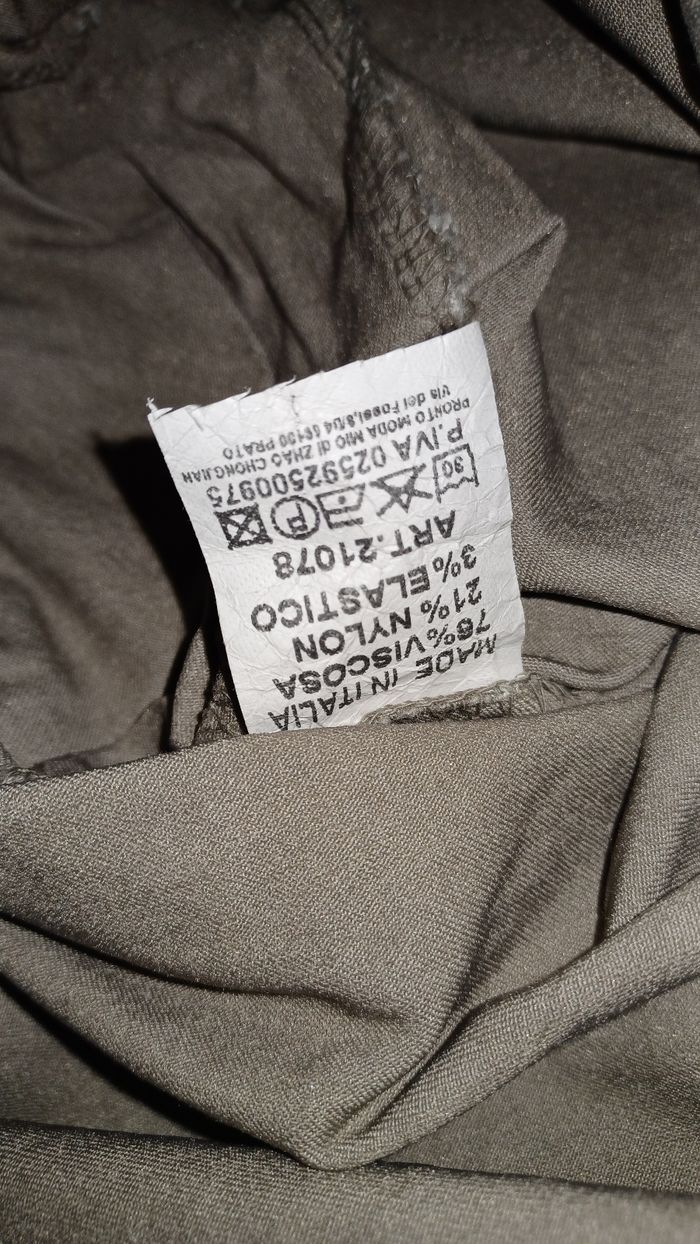 MADE IN ITALIA
76%VISCOSA
21% NYLON
3%ELASTICO
ART.21078
30 P
P.IVA 02592500975
PRONTO MODA MIO di ZHAO CHONGJIAN
Via dei Fossi,8/D4 59100 PRATO